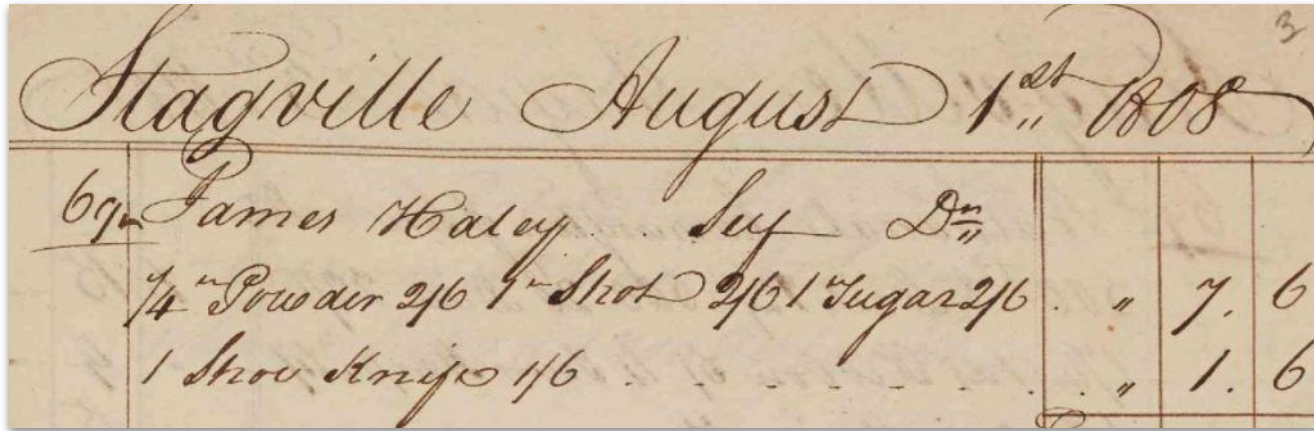 3
Stagville August 1st 1808
69 James Haley Self Dr
1/4 " Powder 2/6 1 " Shot 2/6 1 " Sugar 2/6 . " 7. 6
1 Shoe Knife 1/6 . . - - - - - . . " 1. 6